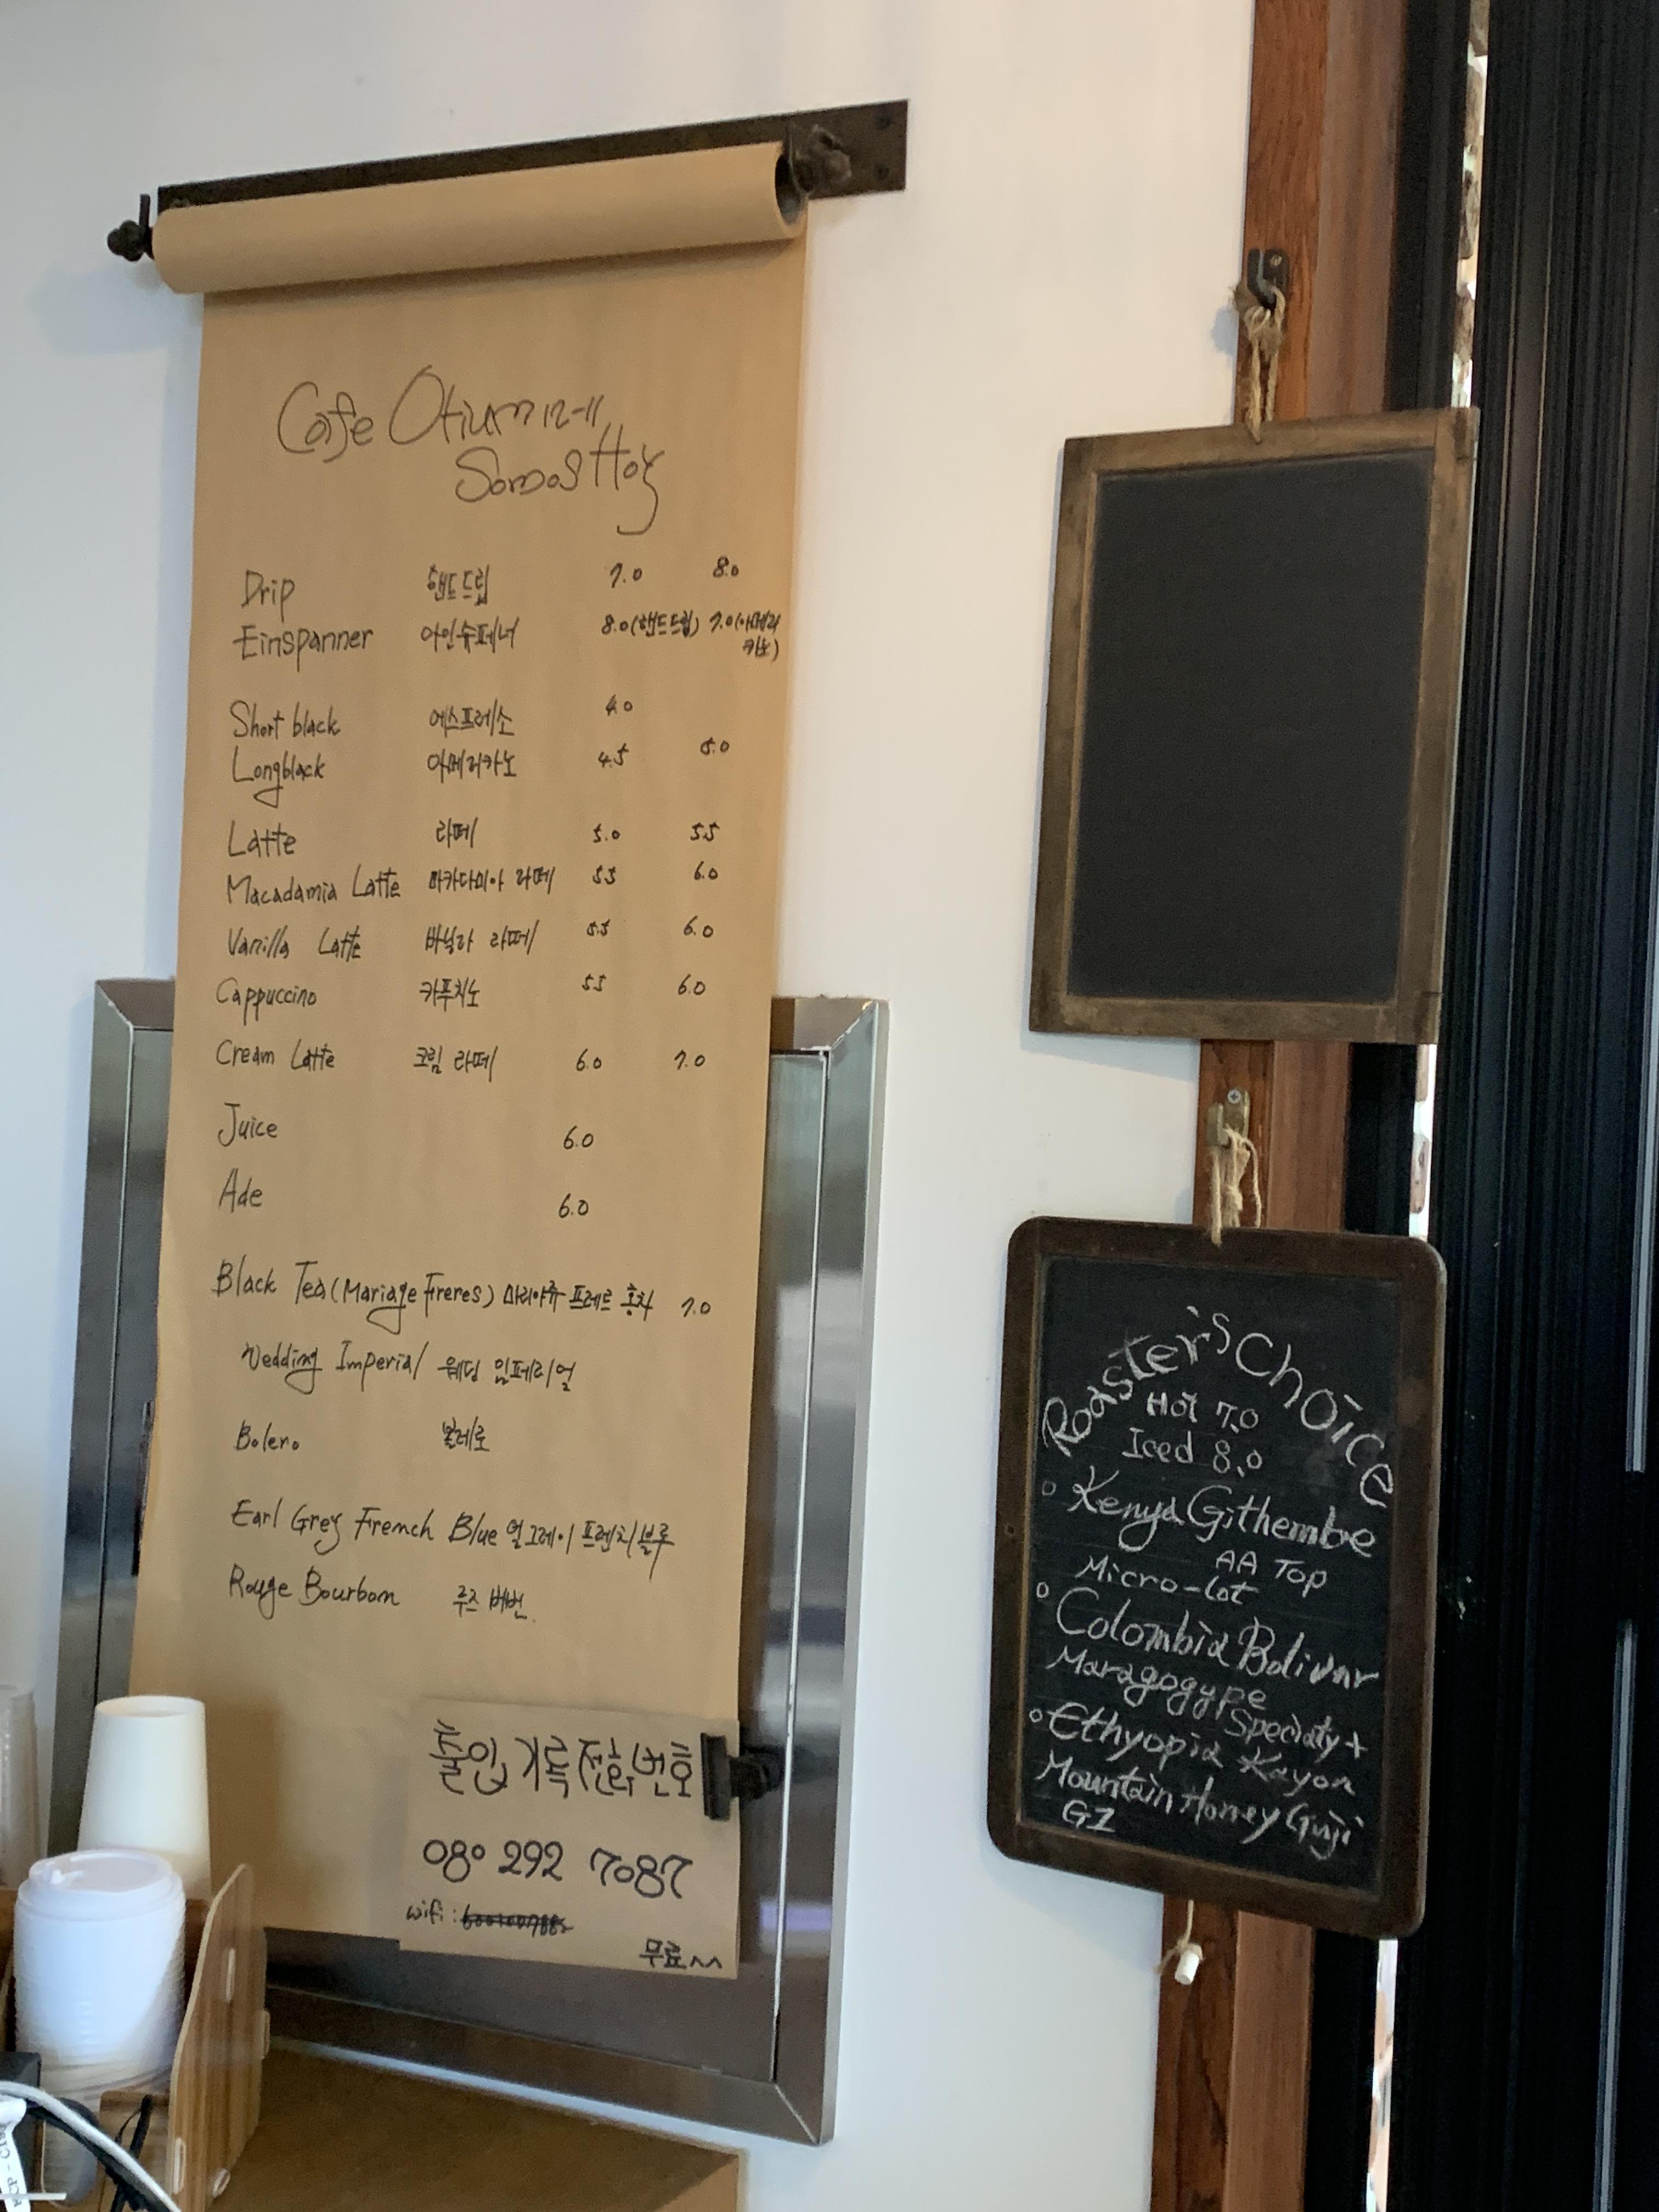 Cafe Otium
Somos Hoy
Drip 핸드드립 7.0 8.0
Einspanner 아인슈페너 8.0(핸드드립) 7.0(아메리
카노)
Short black 에스프레소 4.0
Longblack 아메리카노 4.5 5.0
Latte 라떼 5.0 5.5
Macadamia Latte 마카다미아 라떼 5.5 6.0
Vanilla Latte 바닐라 라떼 5.5 6.0
Cappuccino 카푸치노 5.5 6.0
Cream Latte 크림 라떼 6.0 7.0
Juice 6.0
Ade 6.0
Black Tea (Mariage Freres) 마리아쥬 프레르 홍차 7.0
Wedding Imperial 웨딩 임페리얼
Bolero 볼레로
Earl Grey French Blue 얼그레이 프렌치 블루
Rouge Bourbom 루즈 버번.
출입기록전화번호
080 292 7087
wifi:
무료^^
Roaster's Choice
Hot 7.0
Iced 8.0
Kenya Githembe
AA Top
Micro-Lot
Colombia Bolivar
Maragogype
Specialty+
Ethyopia Kayon
Mountain Honey Guji
G1